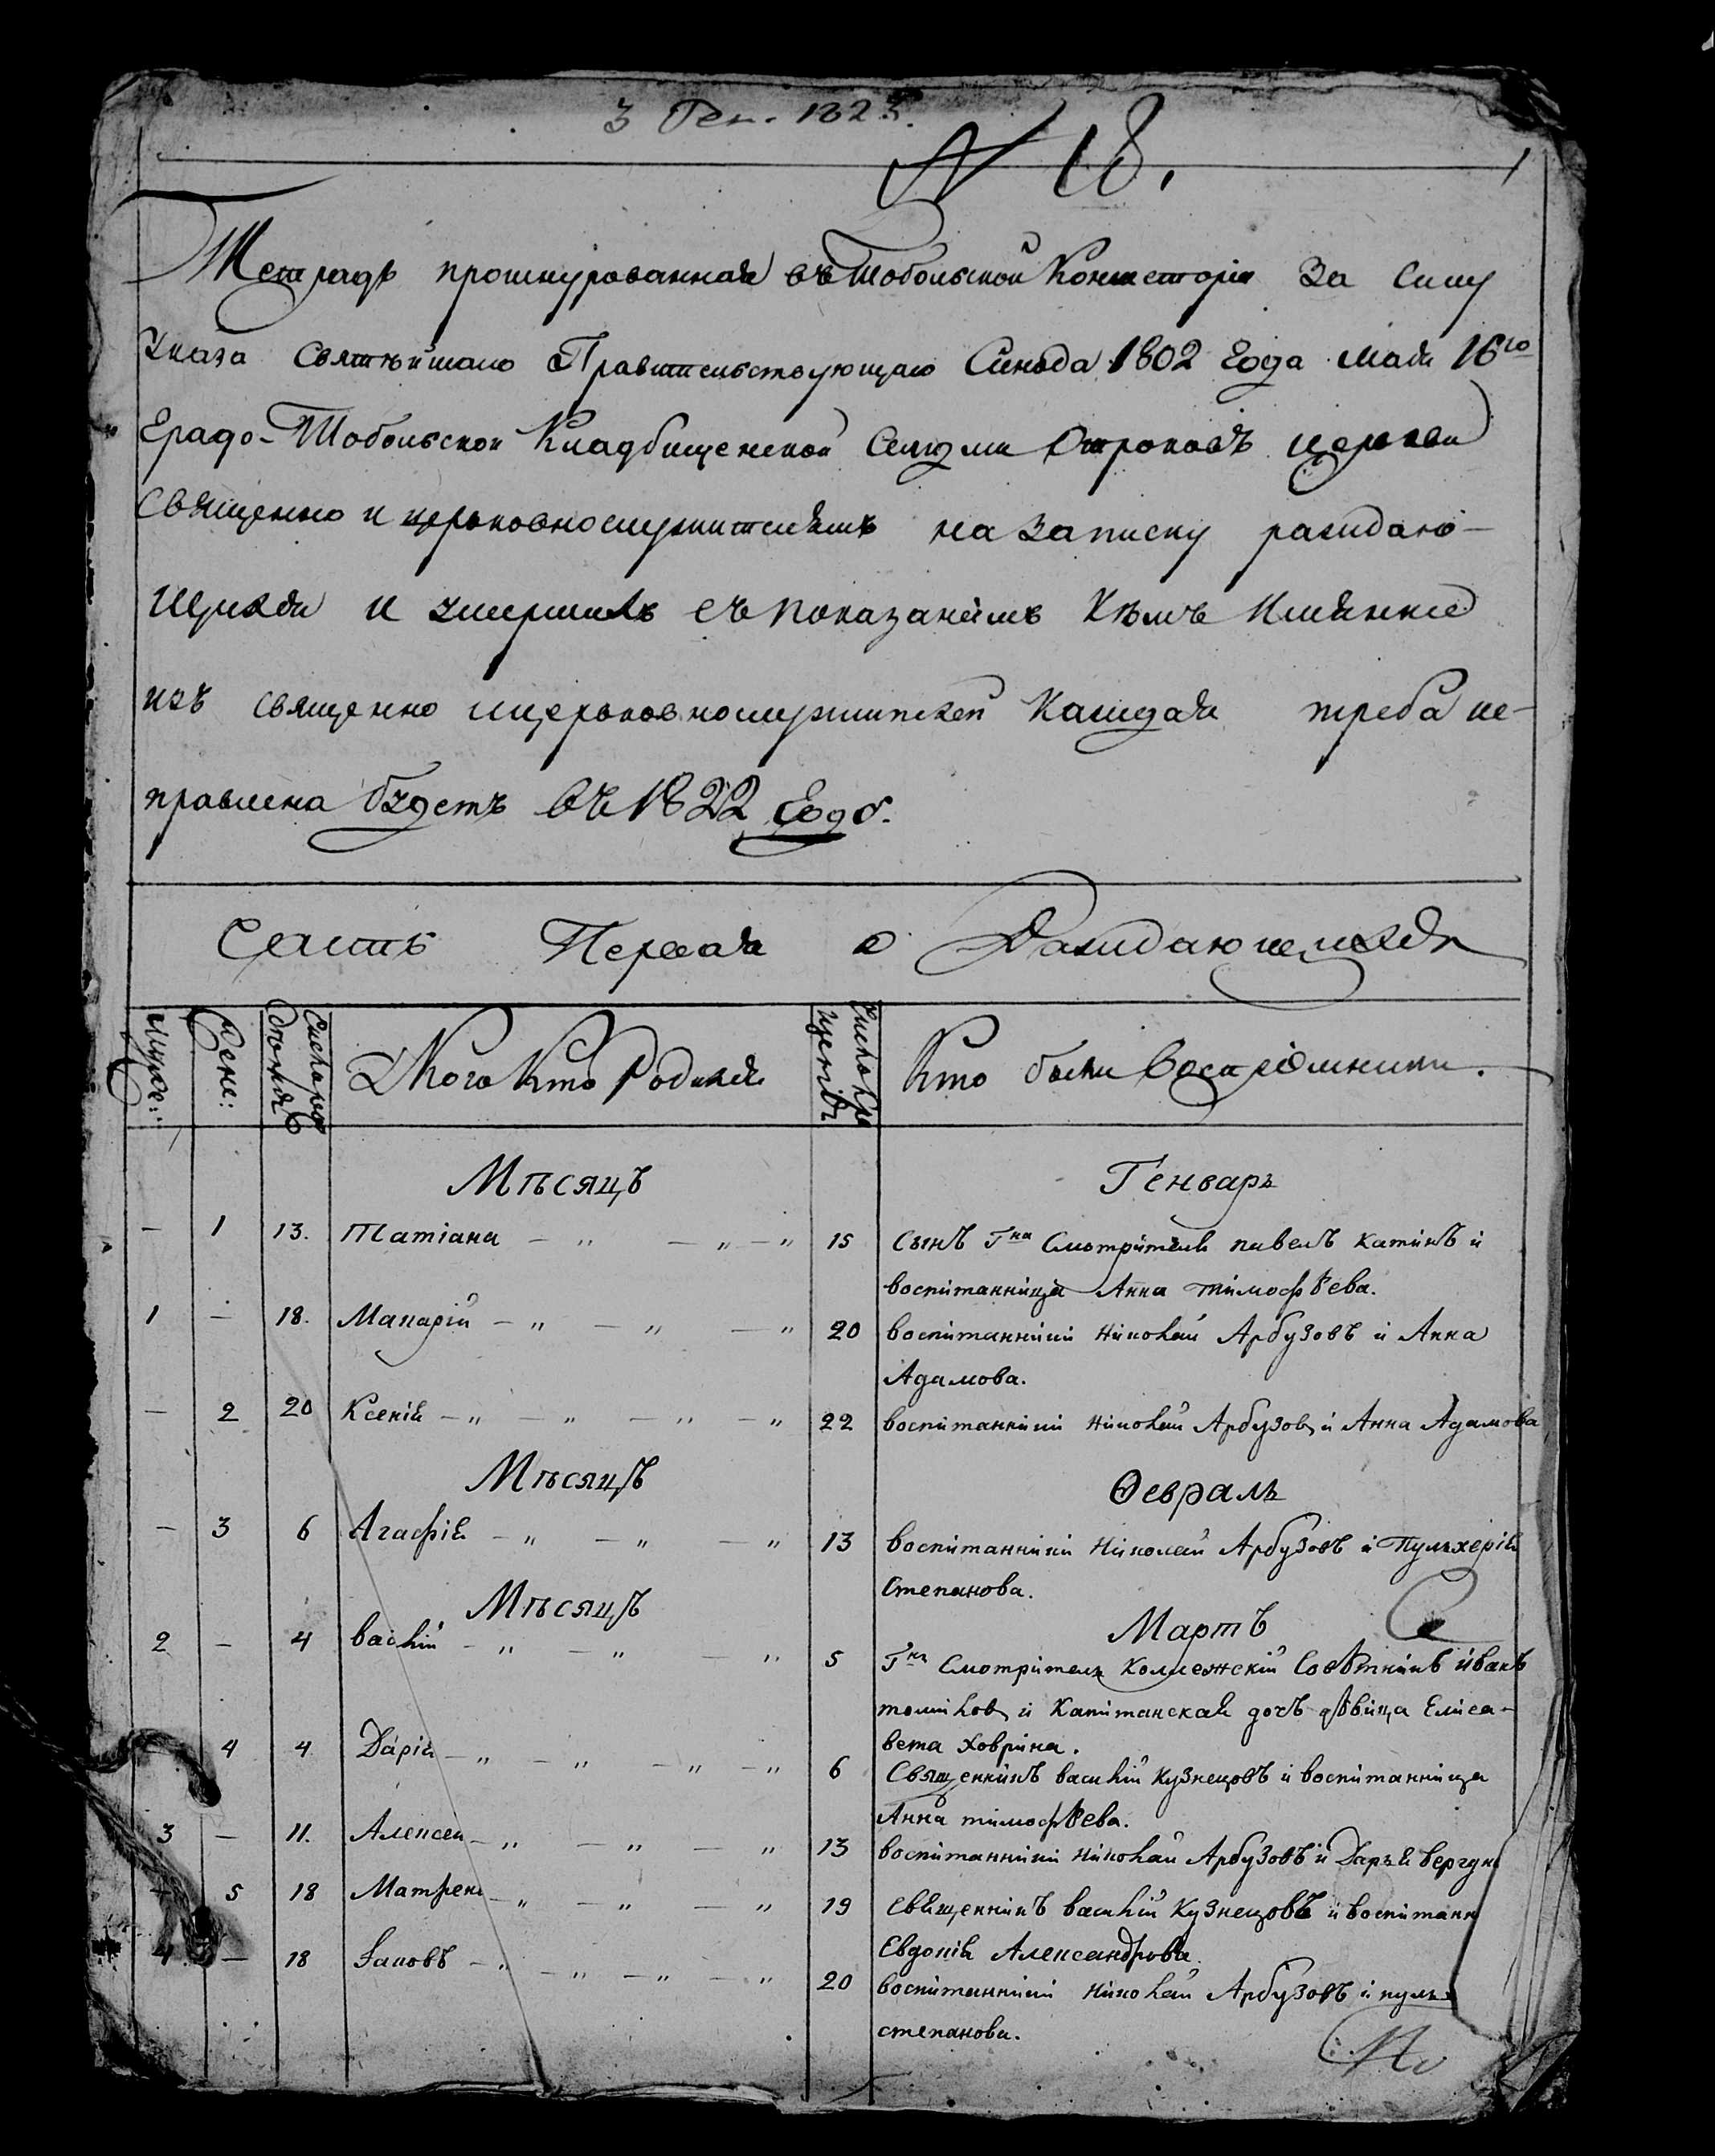 3 Ген. 1823.
N 18.
1
Тетрадь прошнурованная въ Тобольской Консисторіи За силу
Указа Святѣйшаго Правительствующаго Синода 1802 Года Маія 16го
Градо-Тобольской Кладбищенской Седми Отроковъ церкви
Священно и церковнослужителямъ на записку раждаю-
щихся и умершихъ съ показаніемъ Кѣмъ Имянно
изъ священно ицерковнослужителей Каждая треба ис-
правлена будетъ въ 1822 Годѣ.
Часть Первая о Раждающихся
Муже: Жене: Число рождѣнія УКого Кто Родился Число Крещенія Кто были Воспріемники.
Мѣсяцъ Генварь
— 1 13. Татіана — „ — „ — „ 15 Сынъ Гна Смотрителя павелъ катинъ и
воспитанница Анна тимофѣева.
1 — 18. Макарій — „ — „ — „ 20 воспитанники николай Арбузовъ и Анна
Адамова.
— 2 20 Ксенія — „ — „ — „ — „ 22 воспитанники николай Арбузовъ и Анна Адамова
Мѣсяцъ Февраль
— 3 6 Агафія — „ — „ — „ 13 воспитанники николай Арбузовъ и Пульхерія
Степанова.
Мѣсяцъ Мартъ
2 — 4 василій — „ — „ — „ 5 Гнъ Смотритель Коллежскій Совѣтникъ иванъ
и Капитанская дочь дѣвица Елиса-
вета Ховрина.
4 4 Дарія — „ — „ — „ — „ 6 Священникъ василій Кузнецовъ и воспитанница
Анна тимофѣева.
3 — 11. Алексей — „ — „ — „ 13 воспитанники николай Арбузовъ и Дарья
5 18 Матрена — „ — „ — „ 19 священникъ василій Кузнецовъ и воспитанн
Евдокія Александрова.
4 — 18 Іаковъ — „ — „ — „ — „ 20 воспитанники николай Арбузовъ и пульх
степанова.